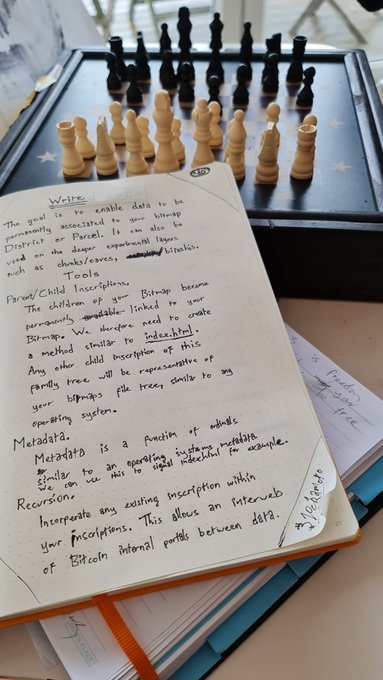 Write
The goal is to enable data to be
permanently associated to your bitmap
District or Parcel. It can also be
used on the deeper experimental layers
such as chunks/caves, bitoshis.
Tools
Parent/Child Inscriptions.
The children of your Bitmap become
permanently linked to your
Bitmap. We therefore need to create
a method similar to index.html.
Any other child inscription of this
family tree will be representative of
your bitmaps file tree, similar to any
operating system.
Metadata.
Metadata is a function of ordinals
similar to an operating systems metadata
We can use this to signal index.html for example.
Recursion.
Incorperate any existing inscription within
your inscriptions. This allows an interweb
of Bitcoin internal portals between data.
21
is freedom